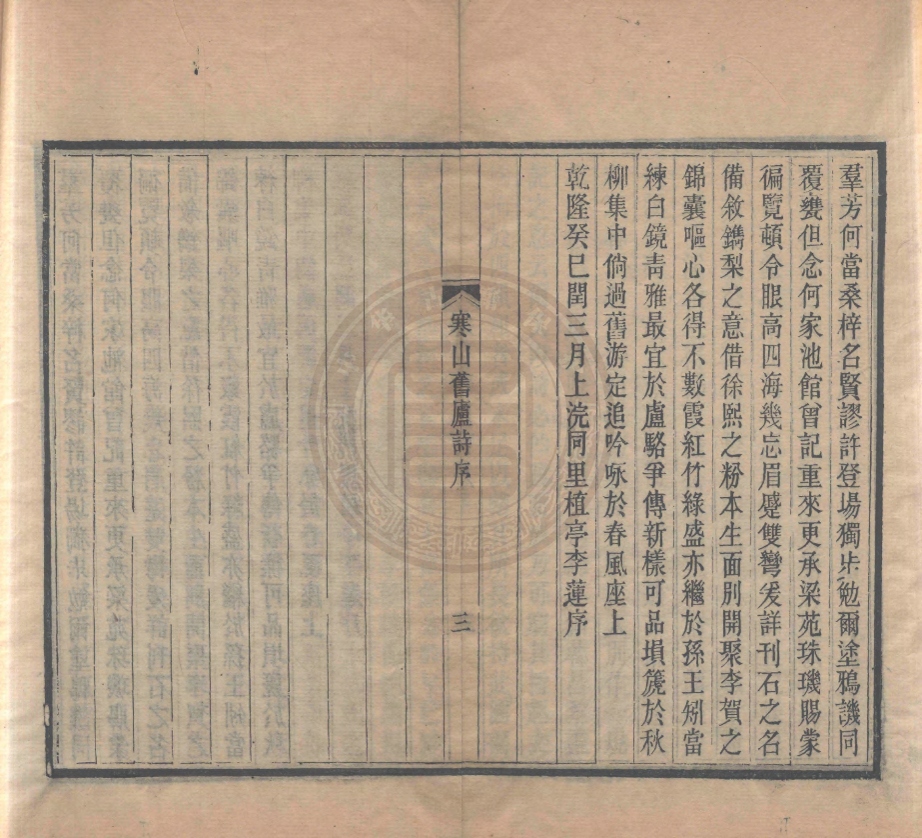 羣芳何當桑梓名賢謬許登場獨步勉爾塗鴉譏同
覆甕但念何家池館曾記重來更承梁苑珠璣賜蒙
徧覽頓令眼高四海幾忘眉蹙雙彎爰詳刊石之名
備敘鐫梨之意借徐熙之粉本生面別開聚李賀之
錦囊嘔心各得不數霞紅竹綠盛亦繼於孫王矧當
練白鏡青雅最宜於盧駱爭傳新樣可品塤篪於秋
柳集中倘過舊游定追吟咏於春風座上
乾隆癸巳閏三月上浣同里植亭李蓮序
寒山舊廬詩序
三